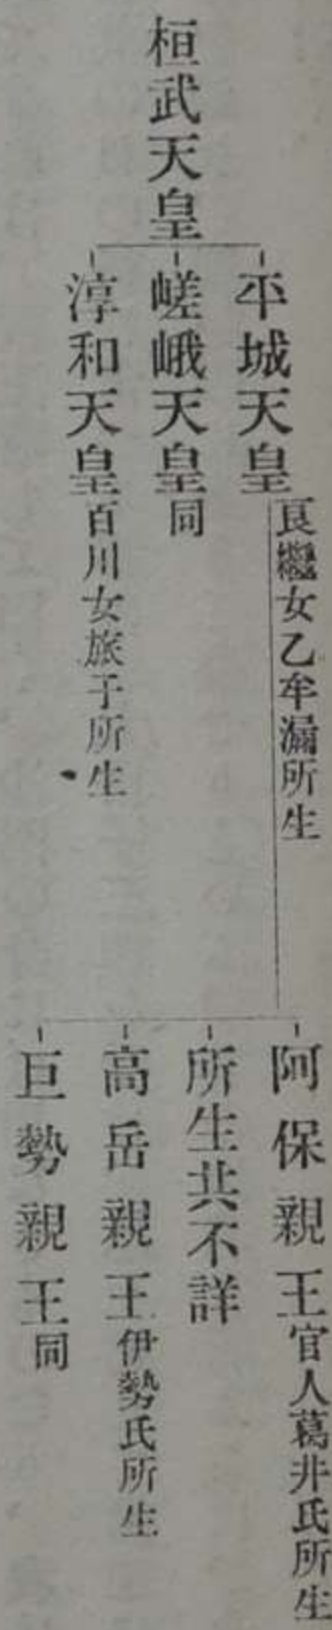 桓武天皇
平城天皇 良繼女乙牟漏所生
嵯峨天皇 同
淳和天皇 百川女旅子所生
阿保親王 官人葛井氏所生
所生共不詳
高岳親王 伊勢氏所生
巨勢親王 同